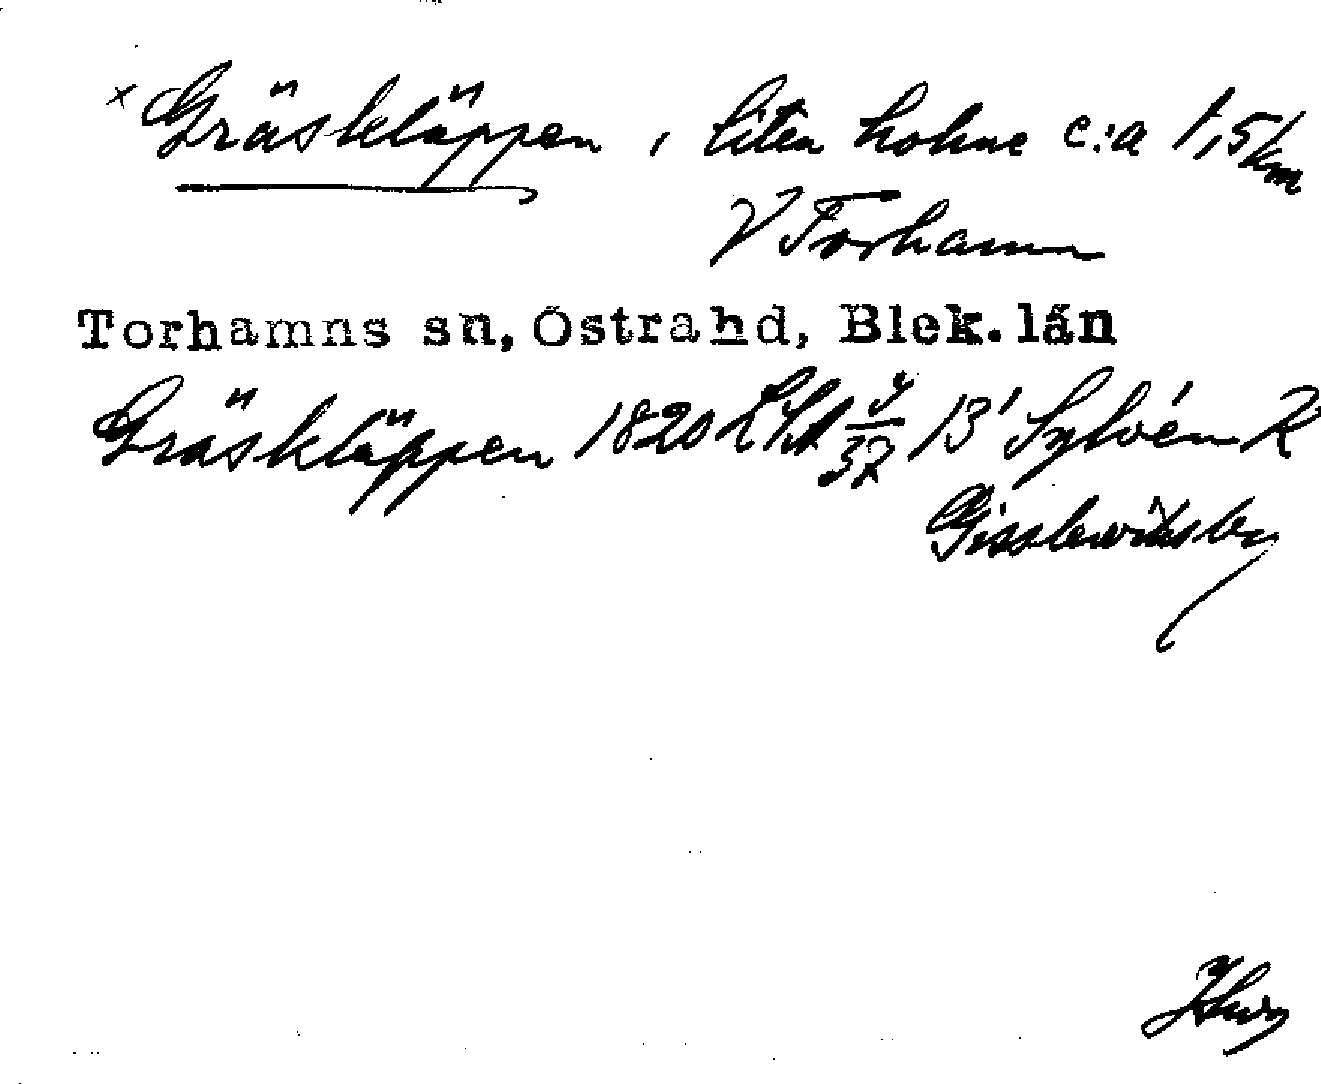 x Gräskläppen, liten holme c:a 1,5 km
V Torhamn
Torhamns sn, Östra hd, Blek. län
Gräskläppen 1820 LSA 13' Sylvén R